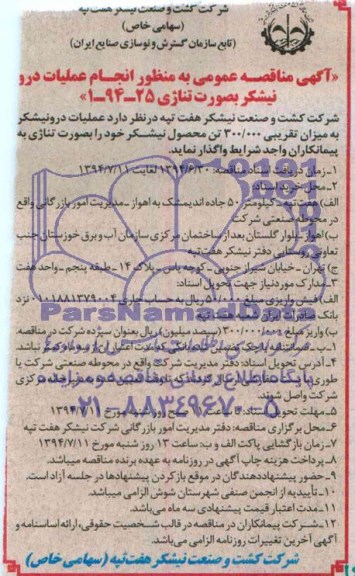 شرکت کشت و صنعت نیشکر هفت تپه
(سهامی خاص)
(تابع سازمان گسترش و نوسازی صنایع ایران)
«آگهی مناقصه عمومی به منظور انجام عملیات درو
نیشکر بصورت تناژی ۲۵-۹۴-۱»
شرکت کشت و صنعت نیشکر هفت تپه در نظر دارد عملیات درو نیشکر
به میزان تقریبی ۳۰۰/۰۰۰ تن محصول نیشکر خود را بصورت تناژی به
پیمانکاران واجد شرایط واگذار نماید.
۱- زمان دریافت اسناد مناقصه: ۱۳۹۴/۶/۳۰ لغایت ۱۳۹۴/۷/۱۱
۲- محل خرید اسناد:
الف) هفت تپه - کیلومتر ۵۰ جاده اندیمشک به اهواز - مدیریت امور بازرگانی واقع
در محوطه صنعتی شرکت
ب) اهواز - بلوار گلستان بعد از ساختمان مرکزی سازمان آب و برق خوزستان جنب
تعاون روستایی دفتر نیشکر هفت تپه
ج) تهران - خیابان شیراز جنوبی - کوچه یاس - پلاک ۱۴ - طبقه پنجم - واحد هفت
۳- مدارک مورد نیاز جهت تحویل اسناد:
الف) فیش واریزی مبلغ ریال به حساب جاری ۰۱۰۱۸۸۱۳۷۹۰۰۴ نزد
بانک صادرات ایران شعبه هفت تپه
ب) واریز مبلغ ۳۰۰/۰۰۰/۰۰۰ (سیصد میلیون) ریال بعنوان سپرده شرکت در مناقصه.
۱-ب- ضمانتنامه یا چک تضمین شده بانکی که مدت اعتبار آن از سه ماه کمتر نباشد.
۴- آدرس تحویل اسناد: دفتر مدیریت شرکت واقع در محوطه صنعتی شرکت یا
شرکت واصل شود.
۵- مهلت تحویل اسناد: تا ساعت صبح روز شنبه مورخ ۱۳۹۴/۷/۱۱
۶- محل برگزاری مناقصه: دفتر مدیریت امور بازرگانی شرکت نیشکر هفت تپه
۷- زمان بازگشایی پاکت الف و ب: ساعت ۱۳ روز شنبه مورخ ۱۳۹۴/۷/۱۱
۸- پرداخت هزینه چاپ آگهی در روزنامه به عهده برنده مناقصه میباشد.
۹- حضور پیشنهاددهندگان در موقع باز کردن پیشنهادها در جلسه آزاد است.
۱۰- تأییدیه از انجمن صنفی شهرستان شوش الزامی میباشد.
۱۱- مدت اعتبار قیمت پیشنهادی سه ماه می‌باشد.
۱۲- شرکت پیمانکاران در مناقصه در قالب شخصیت حقوقی، ارائه اساسنامه و
آگهی آخرین تغییرات روزنامه الزام می‌باشد.
شرکت کشت و صنعت نیشکر هفت تپه (سهامی خاص)
ParsNamadData
پایگاه اطلاع رسانی مناقصه و مزایده
۰۲۱-۸۸۳۴۹۶۷۰-۵